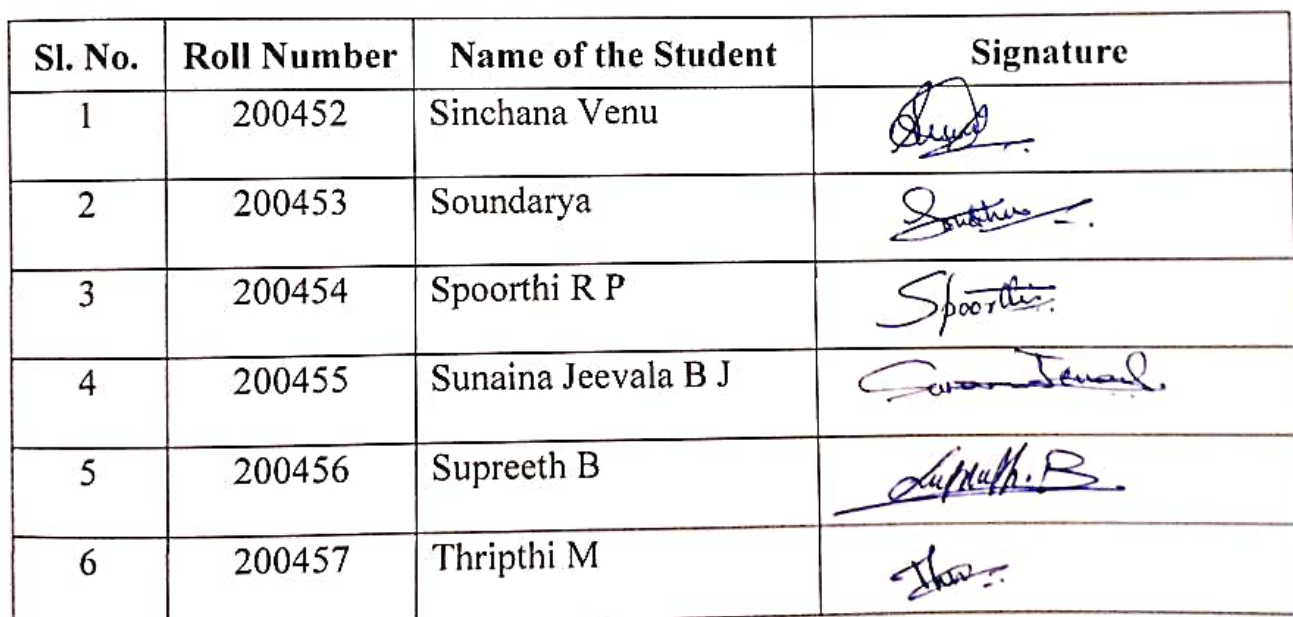 Sl. No. Roll Number Name of the Student Signature
1 200452 Sinchana Venu
2 200453 Soundarya
3 200454 Spoorthi R P Spoorthi
4 200455 Sunaina Jeevala B J
5 200456 Supreeth B Supreeth.B.
6 200457 Thripthi M